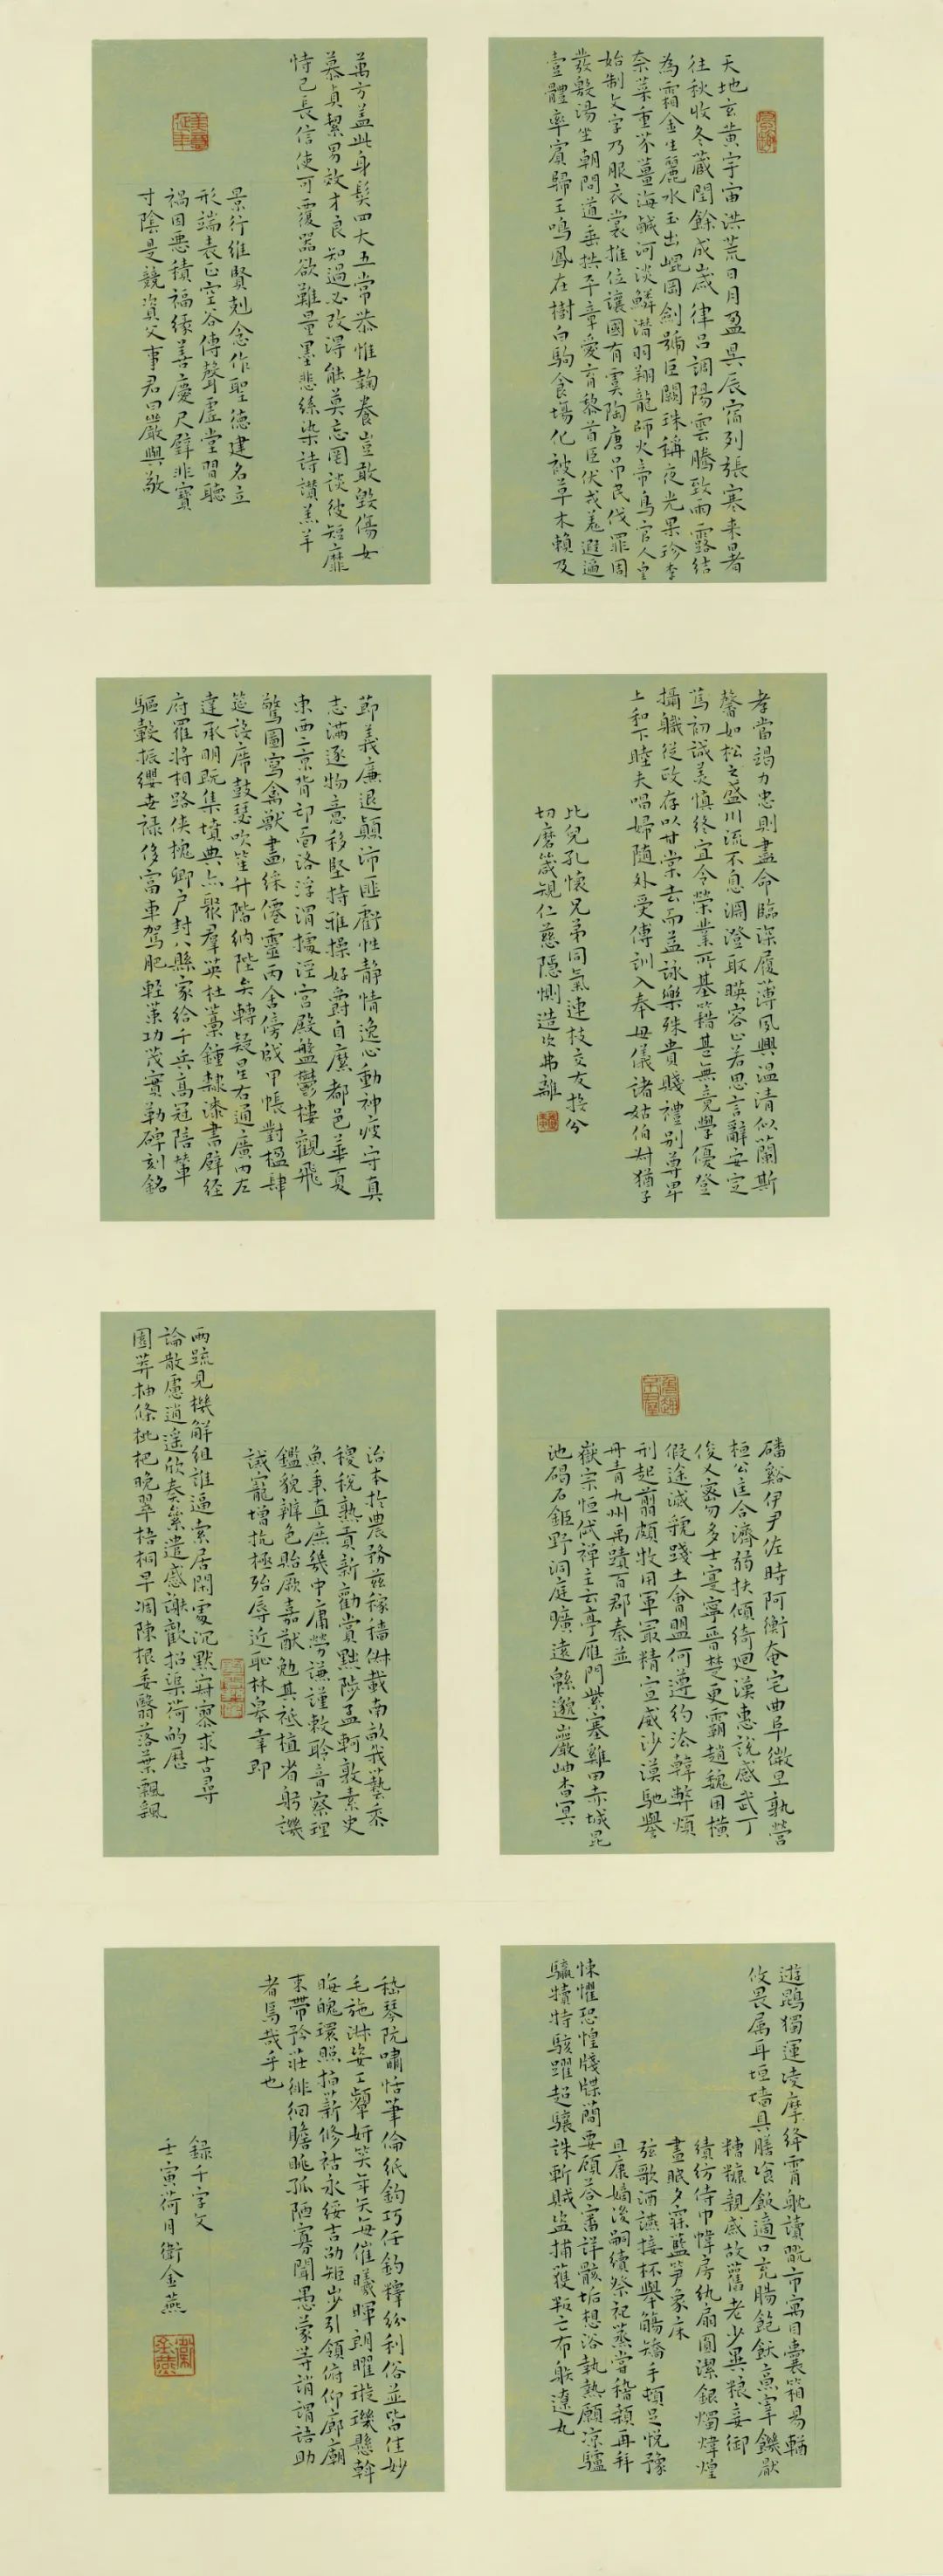 天地玄黄宇宙洪荒日月盈昃辰宿列張寒来暑
往秋收冬藏閏餘成歲律吕調陽雲騰致雨露結
為霜金生麗水玉出崐岡劍號巨闕珠稱夜光果珍李
柰菜重芥薑海鹹河淡鱗潛羽翔龍師火帝鳥官人皇
始制文字乃服衣裳推位讓國有虞陶唐弔民伐罪周
發殷湯坐朝問道垂拱平章愛育黎首臣伏戎羌遐邇
壹體率賓歸王鳴鳳在樹白駒食場化被草木賴及
萬方盖此身髮四大五常恭惟鞠養豈敢毀傷女
慕貞絜男效才良知過必改得能莫忘罔談彼短靡
恃己長信使可覆器欲難量墨悲絲染詩讚羔羊
景行維賢剋念作聖德建名立
形端表正空谷傳聲虛堂習聽
禍因惡積福緣善慶尺璧非寶
寸陰是競資父事君曰嚴與敬
孝當竭力忠則盡命臨深履薄夙興温凊似蘭斯
馨如松之盛川流不息淵澄取暎容止若思言辭安定
篤初誠美慎終宜令榮業所基籍甚無竟學優登
攝職從政存以甘棠去而益詠樂殊貴賤禮别尊卑
上和下睦夫唱婦随外受傅訓入奉母儀諸姑伯叔猶子
比兒孔懷兄弟同氣連枝交友投分
切磨箴規仁慈隱惻造次弗離
節義廉退顛沛匪虧性静情逸心動神疲守真
志滿逐物意移堅持雅操好爵自縻都邑華夏
東西二京背邙面洛浮渭據涇宫殿盤鬱樓觀飛
驚圖寫禽獸畫綵僊靈丙舍傍啟甲帳對楹肆
筵設席鼓瑟吹笙升階納陛弁轉疑星右通廣内左
達承明既集墳典亦聚羣英杜藁鍾隸漆書壁經
府羅將相路俠槐卿户封八縣家給千兵高冠陪輦
驅轂振纓世禄侈富車駕肥輕策功茂實勒碑刻銘
磻谿伊尹佐時阿衡奄宅曲阜微旦孰營
桓公匡合濟弱扶傾綺迴漢惠說感武丁
俊乂密勿多士寔寧晋楚更霸趙魏困橫
假途滅虢踐土會盟何遵約法韓弊煩
刑起翦頗牧用軍最精宣威沙漠馳譽
丹青九州禹蹟百郡秦並
嶽宗恒岱禅主云亭雁門紫塞雞田赤城昆
池碣石鉅野洞庭曠遠緜邈巖岫杳冥
治本於農務兹稼穡俶載南畝我藝黍
稷稅熟貢新勸賞黜陟孟軻敦素史
魚秉直庶幾中庸勞謙謹敕聆音察理
鑑貌辨色貽厥嘉猷勉其祗植省躬譏
誡寵增抗極殆辱近恥林皋幸即
兩疏見機解組誰逼索居閑處沉默寂寥求古尋
論散慮逍遥欣奏累遣慼謝歡招渠荷的歷
園莽抽條枇杷晚翠梧桐早凋陳根委翳落葉飄颻
遊鵾獨運凌摩絳霄耽讀翫市寓目囊箱易輶
攸畏属耳垣墻具膳飡飯適口充腸飽飫烹宰饑厭
糟糠親戚故舊老少異糧妾御
績紡侍巾帷房紈扇圓潔銀燭煒煌
晝眠夕寐藍笋象床
弦歌酒讌接杯舉觴矯手頓足悦豫
且康嫡後嗣續祭祀蒸嘗稽顙再拜
悚懼恐惶牋牒簡要顧答審詳骸垢想浴執熱願凉驢
騾犢特駭躍超驤誅斬賊盜捕獲叛亡布射遼丸
嵇琴阮嘯恬筆倫紙鈞巧任釣釋紛利俗並皆佳妙
毛施淑姿工顰妍笑年矢每催曦暉朗曜璇璣懸斡
晦魄環照指薪修祜永綏吉劭矩步引領俯仰廊廟
束帶矜莊徘徊瞻眺孤陋寡聞愚蒙等誚謂語助
者焉哉乎也
録千字文
壬寅荷月衛金燕